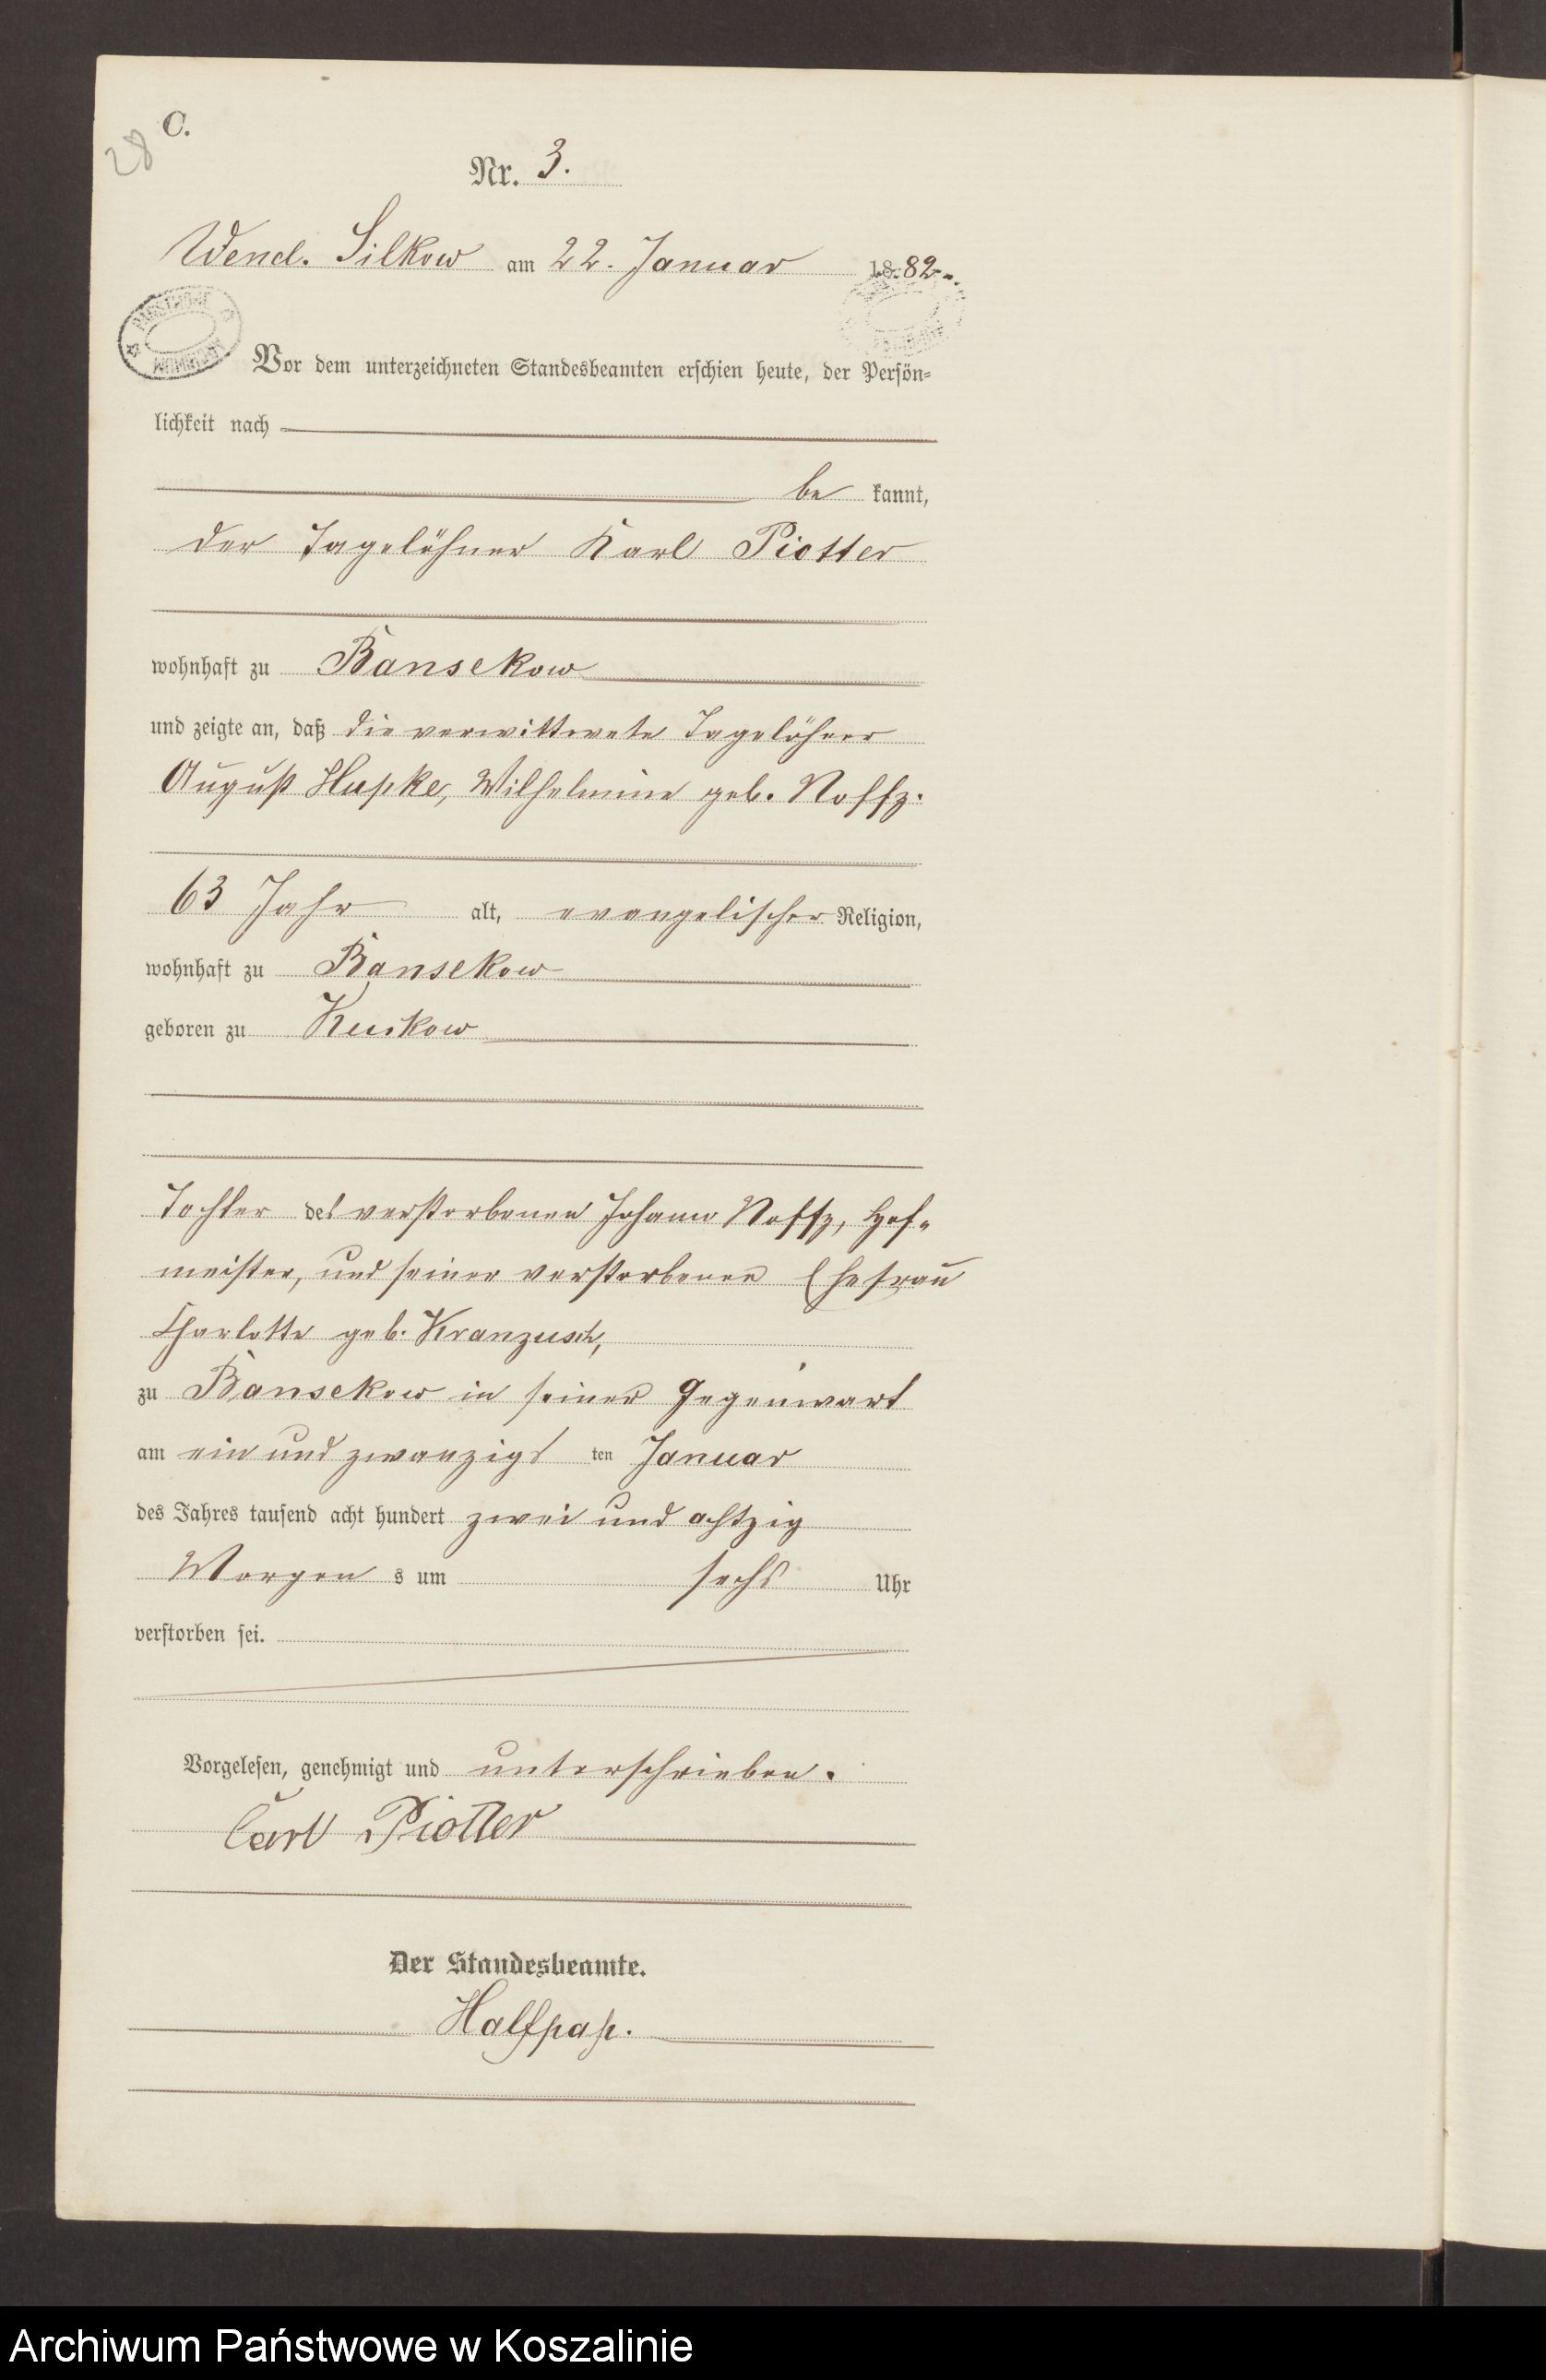 C.
28
Nr. 3.
Wend. Silkow am 22. Januar 1882.
Vor dem unterzeichneten Standesbeamten erschien heute, der Persön-
lichkeit nach
be kannt,
der Tagelöhner Karl Piotter
wohnhaft zu Bansekow
und zeigte an, daß die verwittwete Tagelöhner
August Hupke, Wilhelmine geb. Noffz.
63 Jahr alt, evangelischer Religion,
wohnhaft zu Bansekow
geboren zu Kuskow
Tochter des verstorbenen Johann Noffz, Hof-
meister, und seiner verstorbenen Ehefrau
Charlotte geb. Kranzusch,
zu Bansekow in seiner Gegenwart
am ein und zwanzigs ten Januar
des Jahres tausend acht hundert zwei und achtzig
Morgen s um sechs Uhr
verstorben sei.
Vorgelesen, genehmigt und unterschrieben.
Carl Piotter
Der Standesbeamte.
Halfpap.
Archiwum Państwowe w Koszalinie